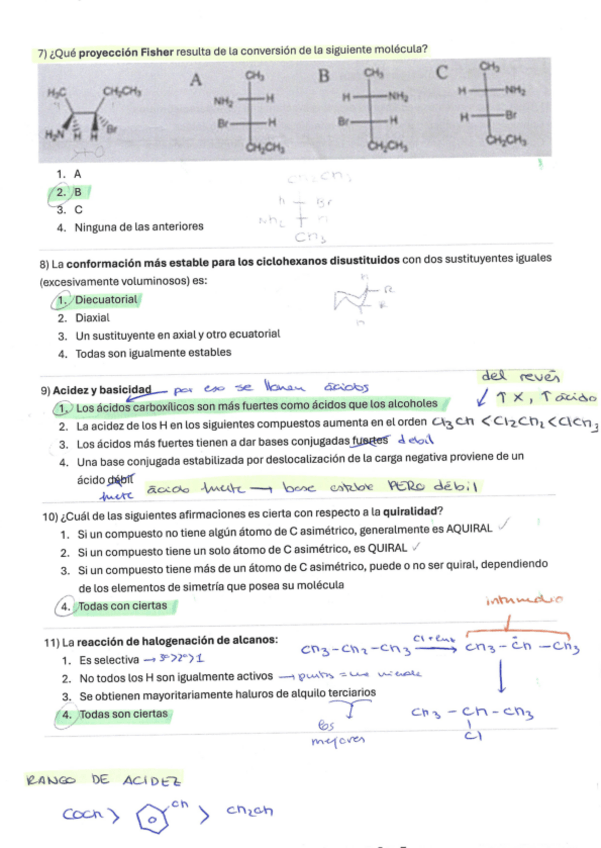 7) ¿Qué proyección Fisher resulta de la conversión de la siguiente molécula?
H₃C CH₂CH₃ H₂N H H Br
A CH₃ NH₂ H Br H CH₂CH₃
B CH₃ H NH₂ Br H CH₂CH₃
C CH₃ H NH₂ H Br CH₂CH₃
1. A
2. B
3. C
4. Ninguna de las anteriores
CH₂CH₃
H Br
NH₂ H
CH₃
8) La conformación más estable para los ciclohexanos disustituidos con dos sustituyentes iguales
(excesivamente voluminosos) es:
1. Diecuatorial
2. Diaxial
3. Un sustituyente en axial y otro ecuatorial
4. Todas son igualmente estables
H
R
R
H
del revés
9) Acidez y basicidad → por eso se llaman ácidos
↓ ↑ X, ↑ ácido
1. Los ácidos carboxílicos son más fuertes como ácidos que los alcoholes
2. La acidez de los H en los siguientes compuestos aumenta en el orden Cl₃CH < Cl₂CH₂ < ClCH₃
3. Los ácidos más fuertes tienen a dar bases conjugadas fuertes débil
4. Una base conjugada estabilizada por deslocalización de la carga negativa proviene de un
ácido débil
fuerte ácido fuerte → base estable PERO débil
10) ¿Cuál de las siguientes afirmaciones es cierta con respecto a la quiralidad?
1. Si un compuesto no tiene algún átomo de C asimétrico, generalmente es AQUIRAL ✓
2. Si un compuesto tiene un solo átomo de C asimétrico, es QUIRAL ✓
3. Si un compuesto tiene más de un átomo de C asimétrico, puede o no ser quiral, dependiendo
de los elementos de simetría que posea su molécula
4. Todas con ciertas
intermedio
11) La reacción de halogenación de alcanos:
CH₃-CH₂-CH₃ → CH₃-ĊH-CH₃
1. Es selectiva → 3º>2º>1
2. No todos los H son igualmente activos →
3. Se obtienen mayoritariamente haluros de alquilo terciarios
4. Todas son ciertas
los
mejores
CH₃-CH-CH₃
Cl
RANGO DE ACIDEZ
COOH > OH > CH₂OH